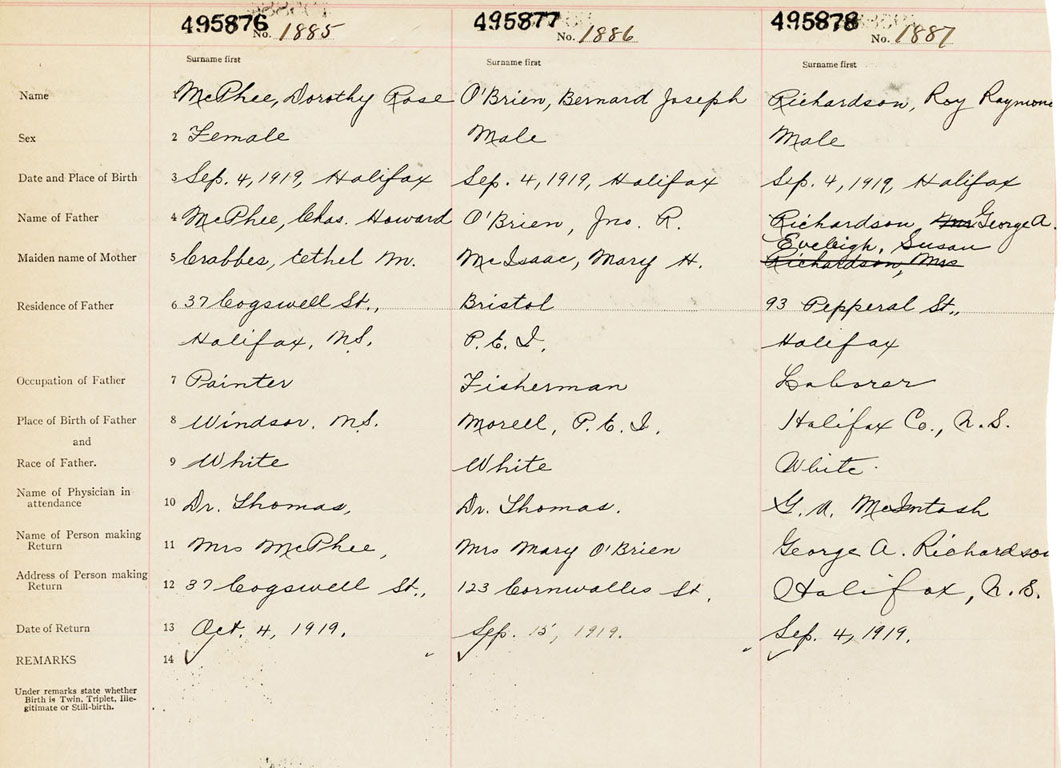 495876 No. 1885 495877 No. 1886 495878 No. 1887
Surname first Surname first Surname first
Name 1 McPhee, Dorothy Rose O'Brien, Bernard Joseph Richardson, Roy Raymond
Sex 2 Female Male Male
Date and Place of Birth 3 Sep. 4, 1919, Halifax Sep. 4, 1919, Halifax Sep. 4, 1919, Halifax
Name of Father 4 McPhee, Chas. Howard O'Brien, Jno. R. Richardson, George A.
Eveleigh, Susan
Maiden name of Mother 5 Crabbes, Ethel M. McIsaac, Mary H. Richardson, Mrs
Residence of Father 6 37 Cogswell St., Bristol 93 Pepperal St.,
Halifax, N.S. P.E.I. Halifax
Occupation of Father 7 Painter Fisherman Laborer
Place of Birth of Father 8 Windsor, N.S. Morell, P.E.I. Halifax Co., N.S.
and
Race of Father. 9 White White White
Name of Physician in
attendance 10 Dr. Thomas, Dr. Thomas. G. A. McIntosh
Name of Person making
Return 11 Mrs McPhee, Mrs Mary O'Brien George A. Richardson
Address of Person making
Return 12 37 Cogswell St., 123 Cornwallis St. Halifax, N.S.
Date of Return 13 Oct. 4, 1919. Sep. 15, 1919. Sep. 4, 1919.
REMARKS 14
Under remarks state whether
Birth is Twin, Triplet, Ille-
gitimate or Still-birth.